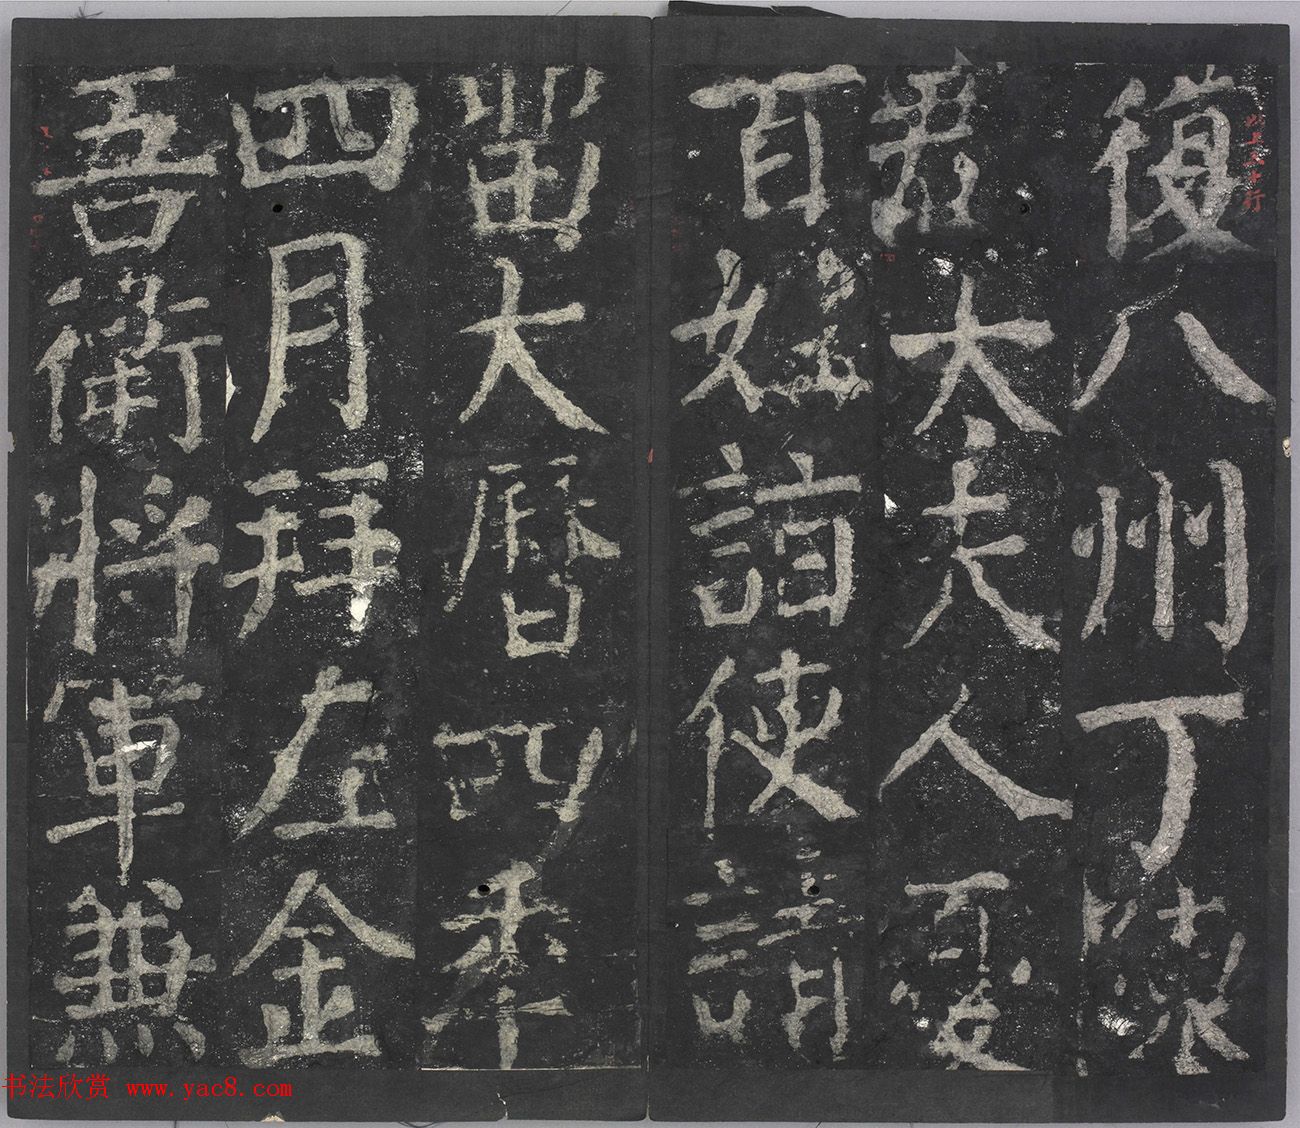 復八州丁陳
郡太夫人憂
百姓詣使請
留大曆四秊
四月拜左金
吾衛將軍兼
书法欣赏 www.yac8.com